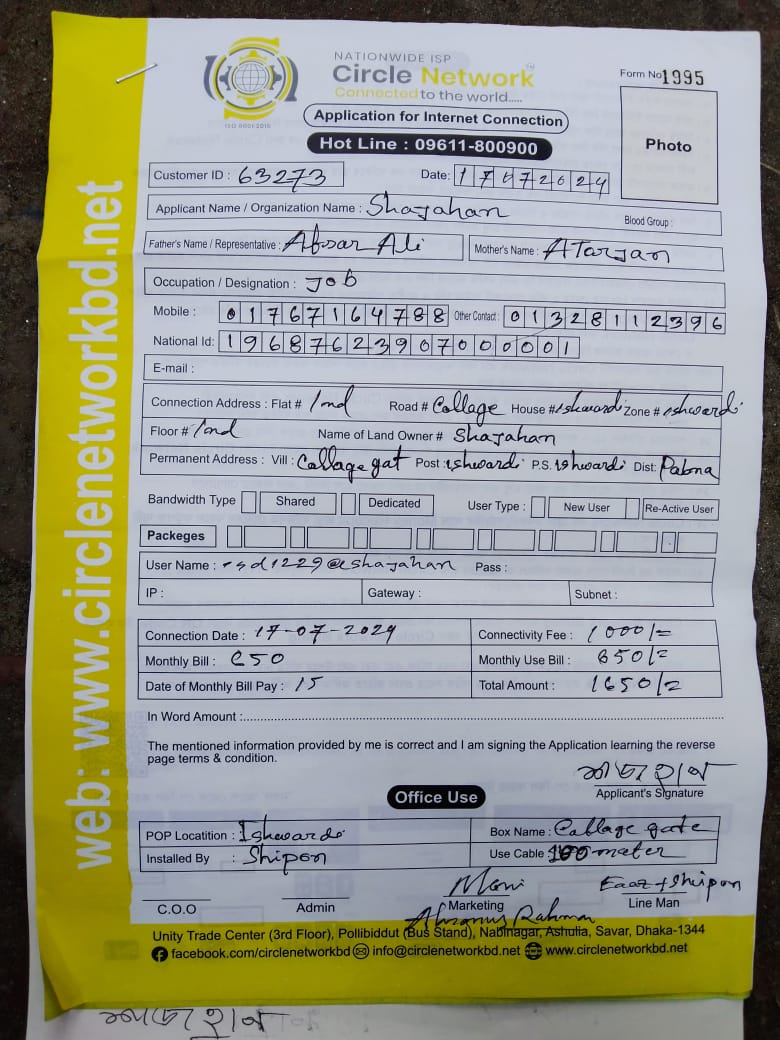 NATIONWIDE ISP
Circle Network
Connected to the world.....
ISO 9001:2015
Form No 1995
Application for Internet Connection
Hot Line : 09611-800900
Photo
Customer ID : 63273
Date: 17072024
Applicant Name / Organization Name : Shajahan
Blood Group :
Father's Name / Representative : Absar Ali
Mother's Name : ATarjan
Occupation / Designation : JOB
Mobile : 01767164788 Other Contact : 01328112396
National Id: 19687623907000001
E-mail :
Connection Address : Flat # Ind Road # Collage House # ishwardi Zone # ishwardi
Floor # Ind Name of Land Owner # Shajahan
Permanent Address : Vill : Collage gat Post : ishwardi P.S. ishwardi Dist: Pabna
Bandwidth Type Shared Dedicated User Type : New User Re-Active User
Packeges
User Name : rsd1229@shajahan Pass :
IP : Gateway : Subnet :
Connection Date : 17-07-2024 Connectivity Fee : 1000/=
Monthly Bill : 650 Monthly Use Bill : 650/=
Date of Monthly Bill Pay : 15 Total Amount : 1650/=
In Word Amount :
The mentioned information provided by me is correct and I am signing the Application learning the reverse
page terms & condition.
শাজাহান
Applicant's Signature
Office Use
POP Locatition : Ishwardi Box Name : Collage gate
Installed By : Shipon Use Cable : 100 meter
Moni
C.O.O Admin Marketing Line Man
Unity Trade Center (3rd Floor), Pollibiddut (Bus Stand), Nabinagar, Ashulia, Savar, Dhaka-1344
facebook.com/circlenetworkbd info@circlenetworkbd.net www.circlenetworkbd.net
web: www.circlenetworkbd.net
শাজাহান